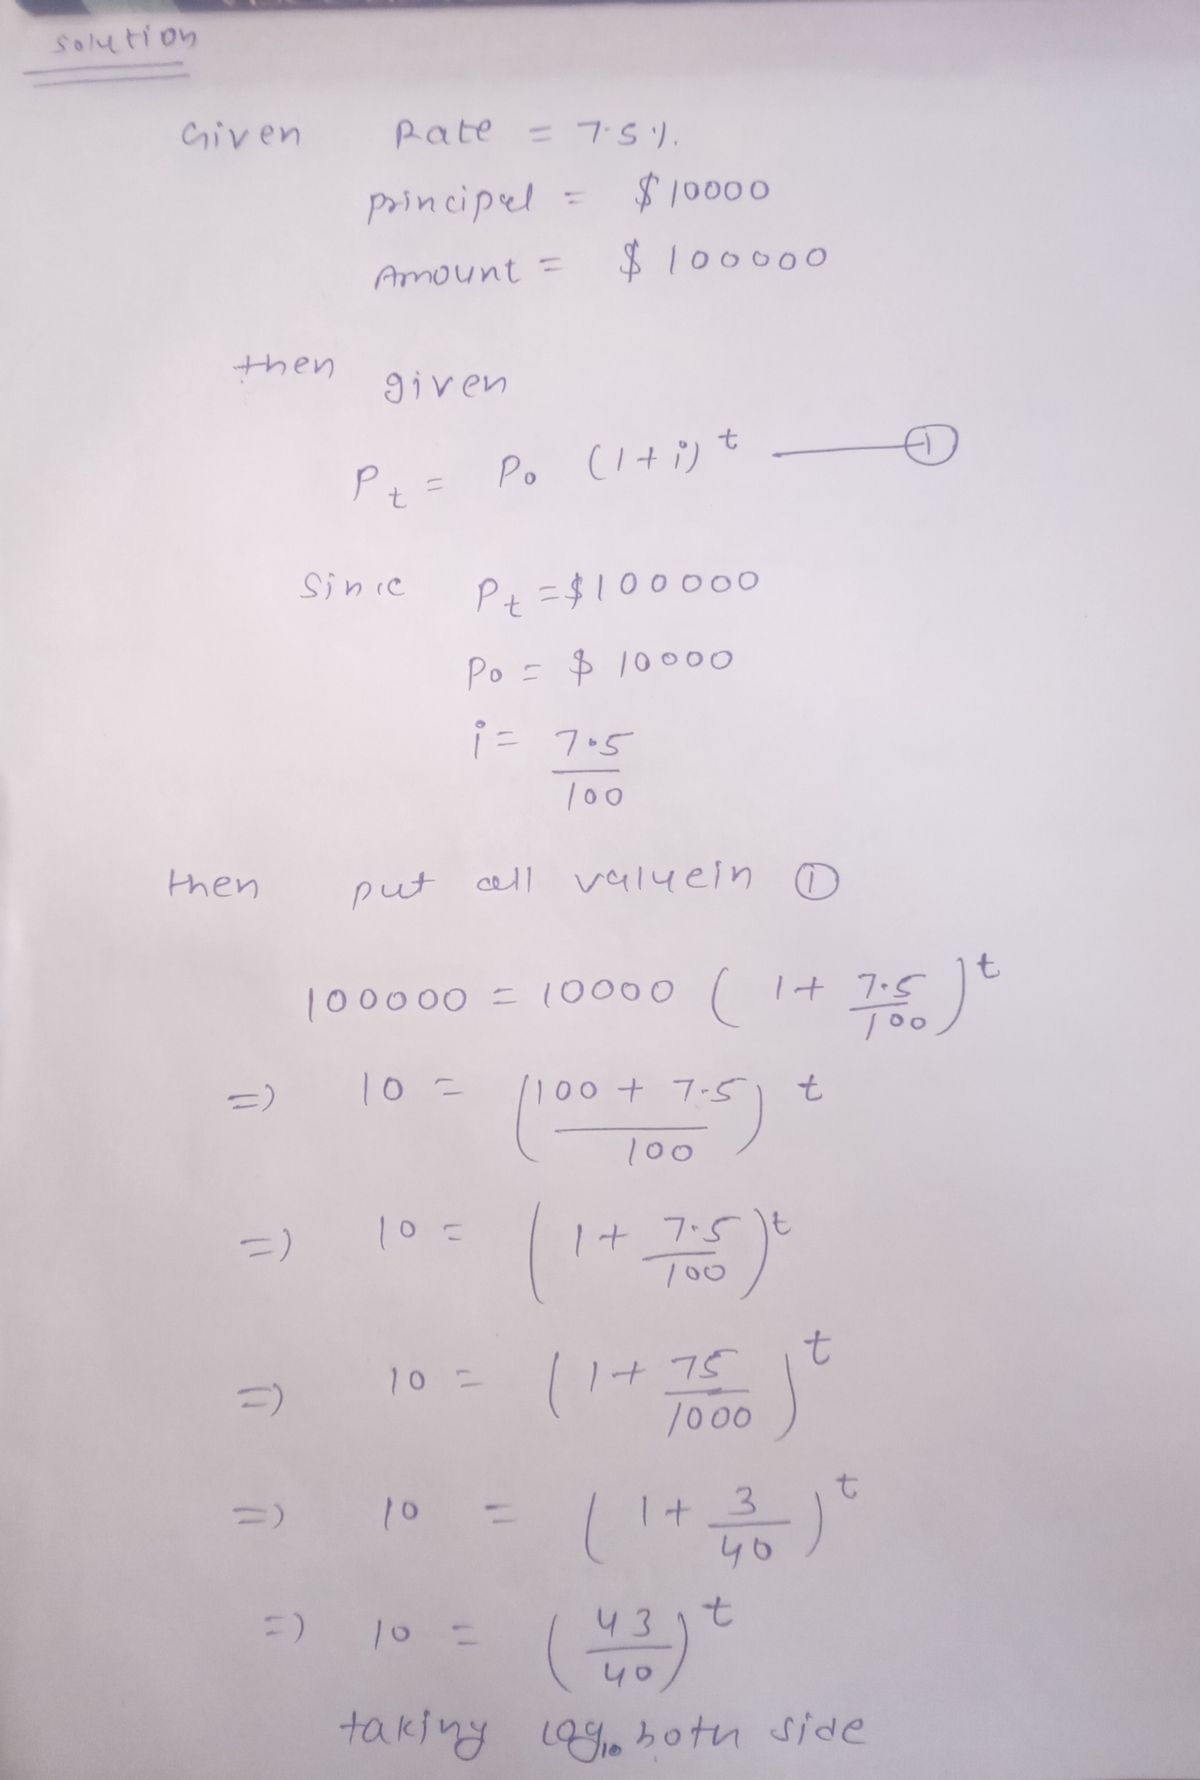 solution
Given Rate = 7.5%.
principal = $10000
Amount = $100000
then given
Pt = Po (1+i)^t ——— ①
Sinic Pt = $100000
Po = $10000
i = 7.5/100
then put all valuein ①
100000 = 10000 (1+ 7.5/100)^t
=) 10 = (100 + 7.5/100)^t
=) 10 = (1+ 7.5/100)^t
=) 10 = (1+ 75/1000)^t
=) 10 = (1+ 3/40)^t
=) 10 = (43/40)^t
taking log10 both side